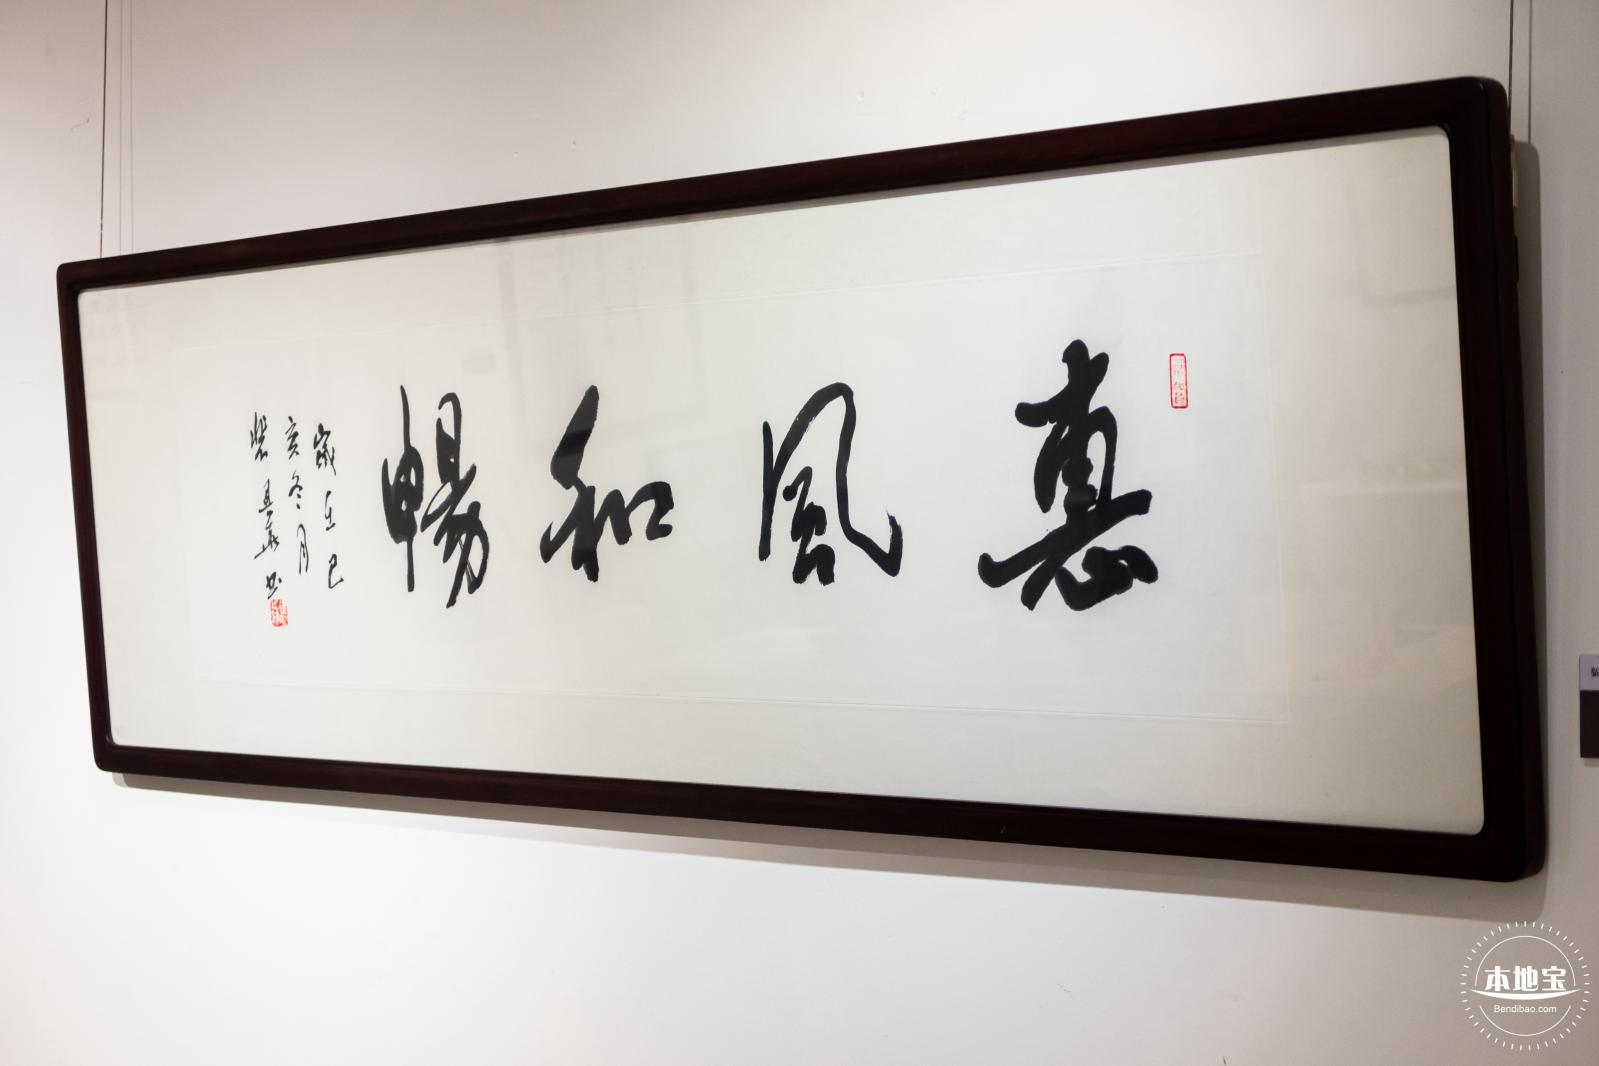 惠風和暢
歲在己
亥冬月
本地宝
Bendibao.com